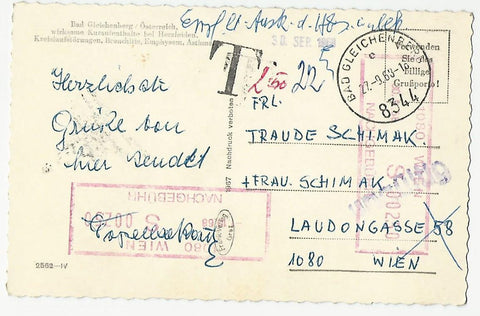 Bad Gleichenberg / Österreich,
wirksame Kuranstalten bei Herzleiden,
Kreislaufstörungen, Bronchitis, Emphysem, Asthma
30. SEP. 19
T
2.50 22
BAD GLEICHENBERG
27.-9.68-18
c
8344
Verwenden
Sie das
billige
Grußporto!
Herzlichste
Grüße von
hier sendet
FRL.
TRAUDE SCHIMAK
+ FRAU. SCHIMAK
LAUDONGASSE 58
1080 WIEN
1967 Nachdruck verboten
NACHGEBÜHR
S 00250
1080 WIEN
1080 WIEN
S 00250
NACHGEBÜHR
2562-IV